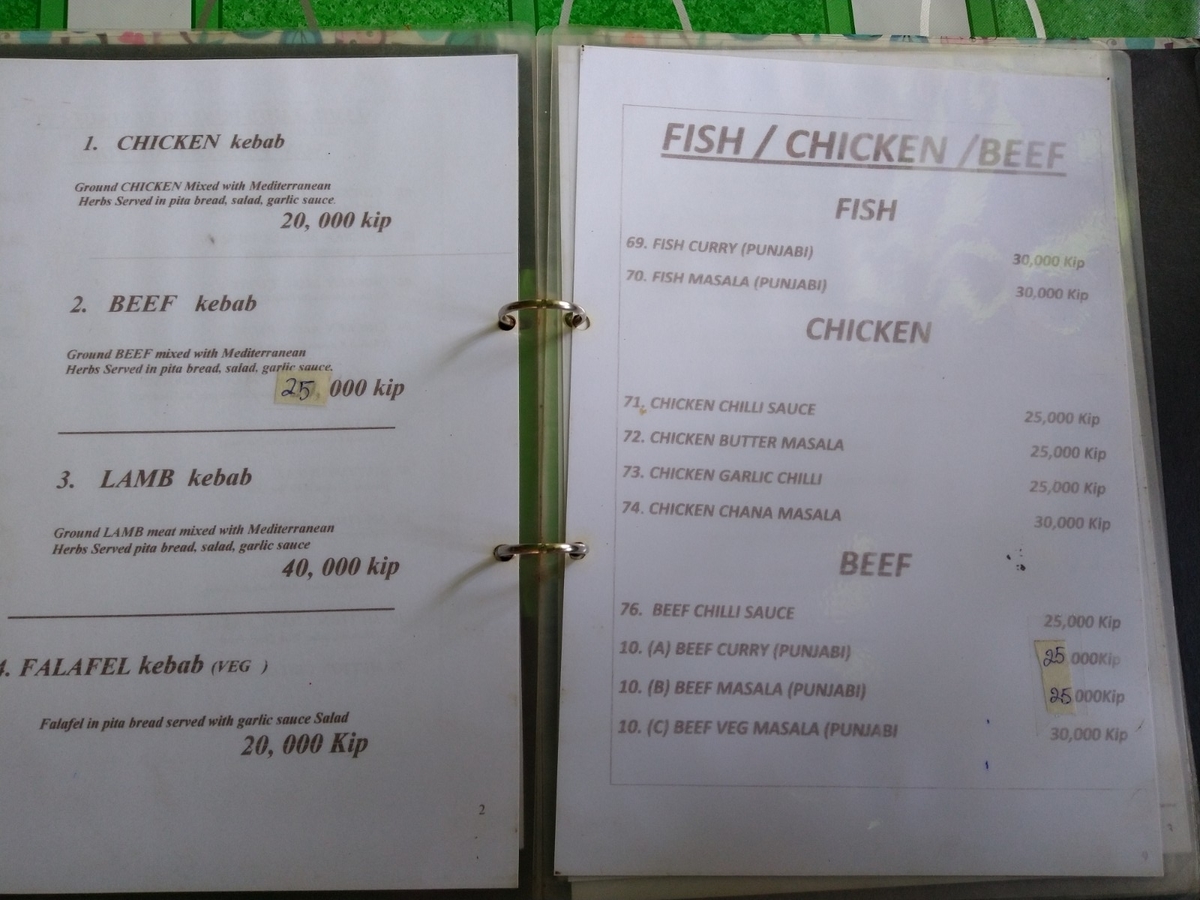 1. CHICKEN kebab
Ground CHICKEN Mixed with Mediterranean
Herbs Served in pita bread, salad, garlic sauce.
20, 000 kip
2. BEEF kebab
Ground BEEF mixed with Mediterranean
Herbs Served in pita bread, salad, garlic sauce.
25,000 kip
3. LAMB kebab
Ground LAMB meat mixed with Mediterranean
Herbs Served pita bread, salad, garlic sauce
40, 000 kip
4. FALAFEL kebab (VEG )
Falafel in pita bread served with garlic sauce Salad
20, 000 Kip
2
FISH / CHICKEN /BEEF
FISH
69. FISH CURRY (PUNJABI) 30,000 Kip
70. FISH MASALA (PUNJABI) 30,000 Kip
CHICKEN
71. CHICKEN CHILLI SAUCE 25,000 Kip
72. CHICKEN BUTTER MASALA 25,000 Kip
73. CHICKEN GARLIC CHILLI 25,000 Kip
74. CHICKEN CHANA MASALA 30,000 Kip
BEEF
76. BEEF CHILLI SAUCE 25,000 Kip
10. (A) BEEF CURRY (PUNJABI) 25 000Kip
10. (B) BEEF MASALA (PUNJABI) 25 000Kip
10. (C) BEEF VEG MASALA (PUNJABI 30,000 Kip